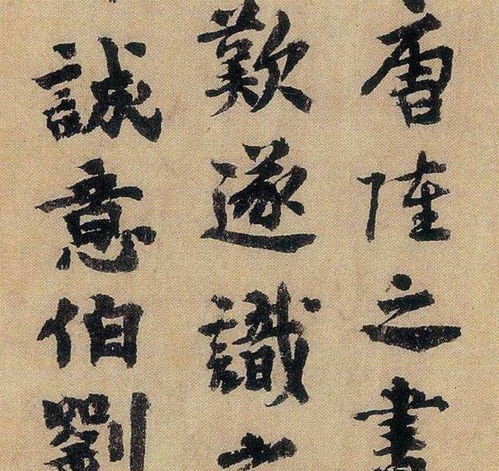 唐陸之書
歎遂識
誠意伯劉